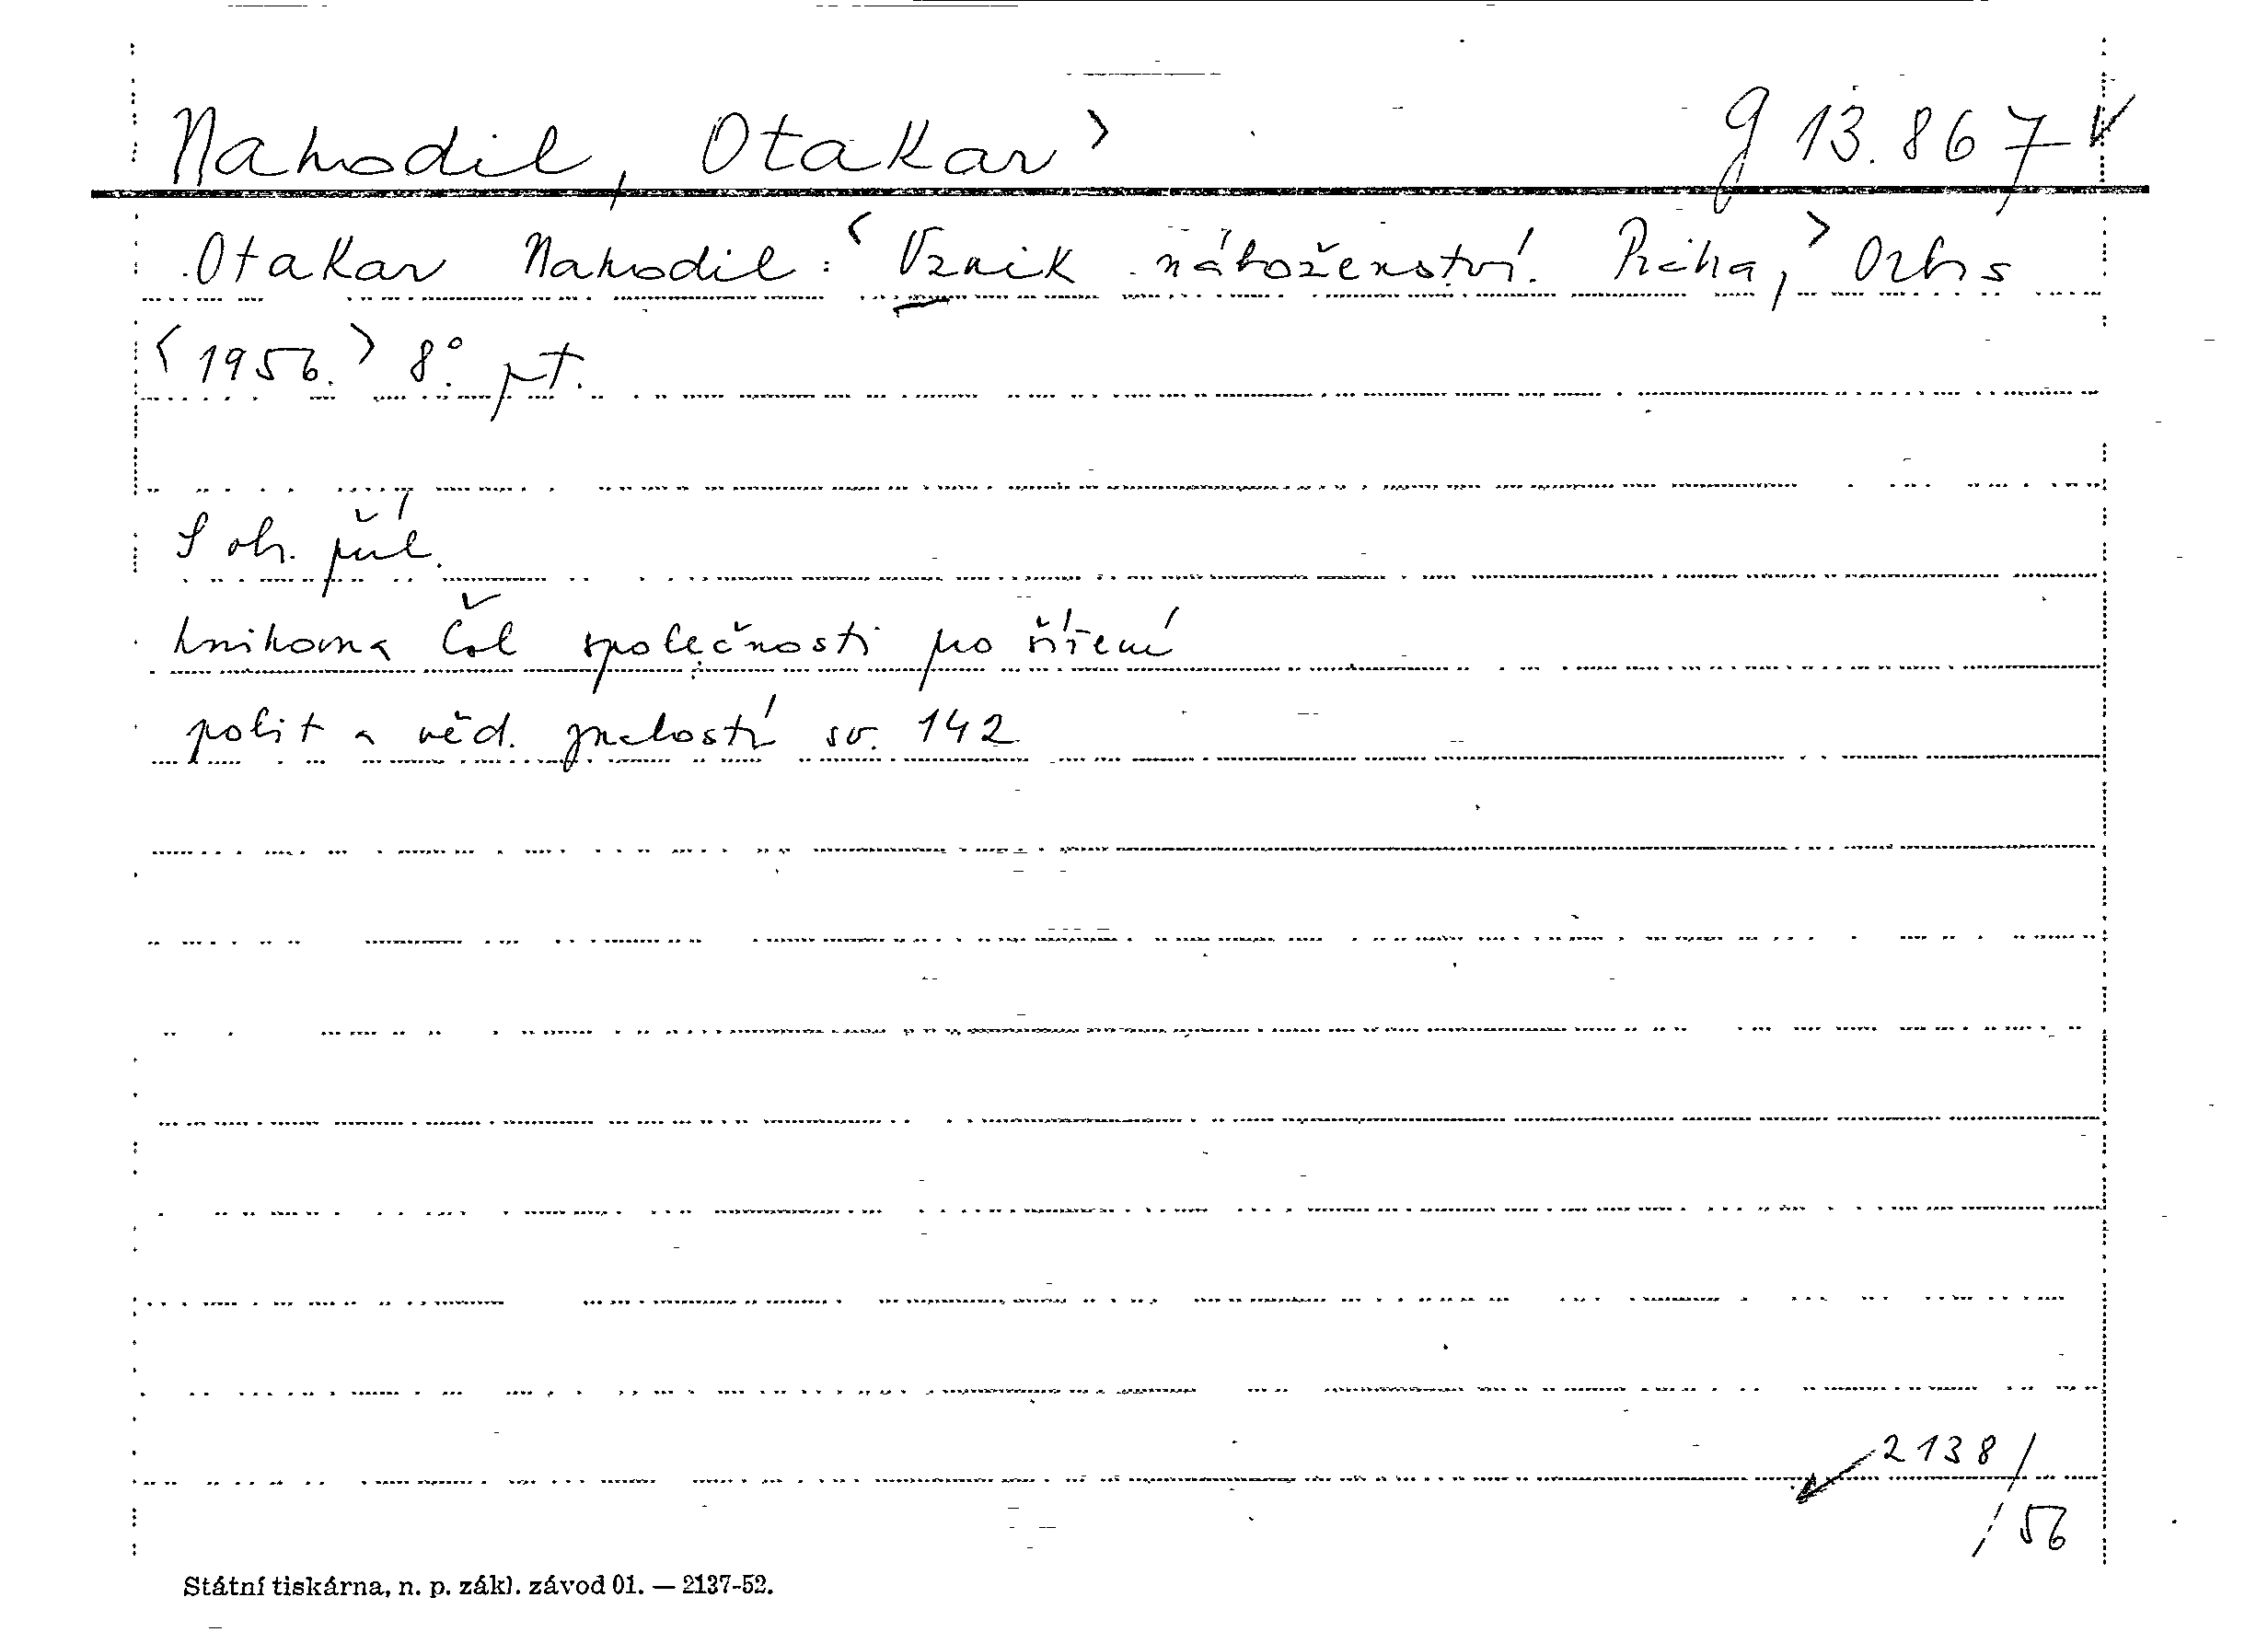 Nahodil, Otakar> g 13.867
Otakar Nahodil: <Vznik náboženství. Praha,> Orbis
<1956.> 8°. pt.
S obr. příl.
Knihovna Čsl společnosti pro šíření
polit a věd. znalostí sv. 142
2138/
/56
Státní tiskárna, n. p. zákl. závod 01. — 2137-52.